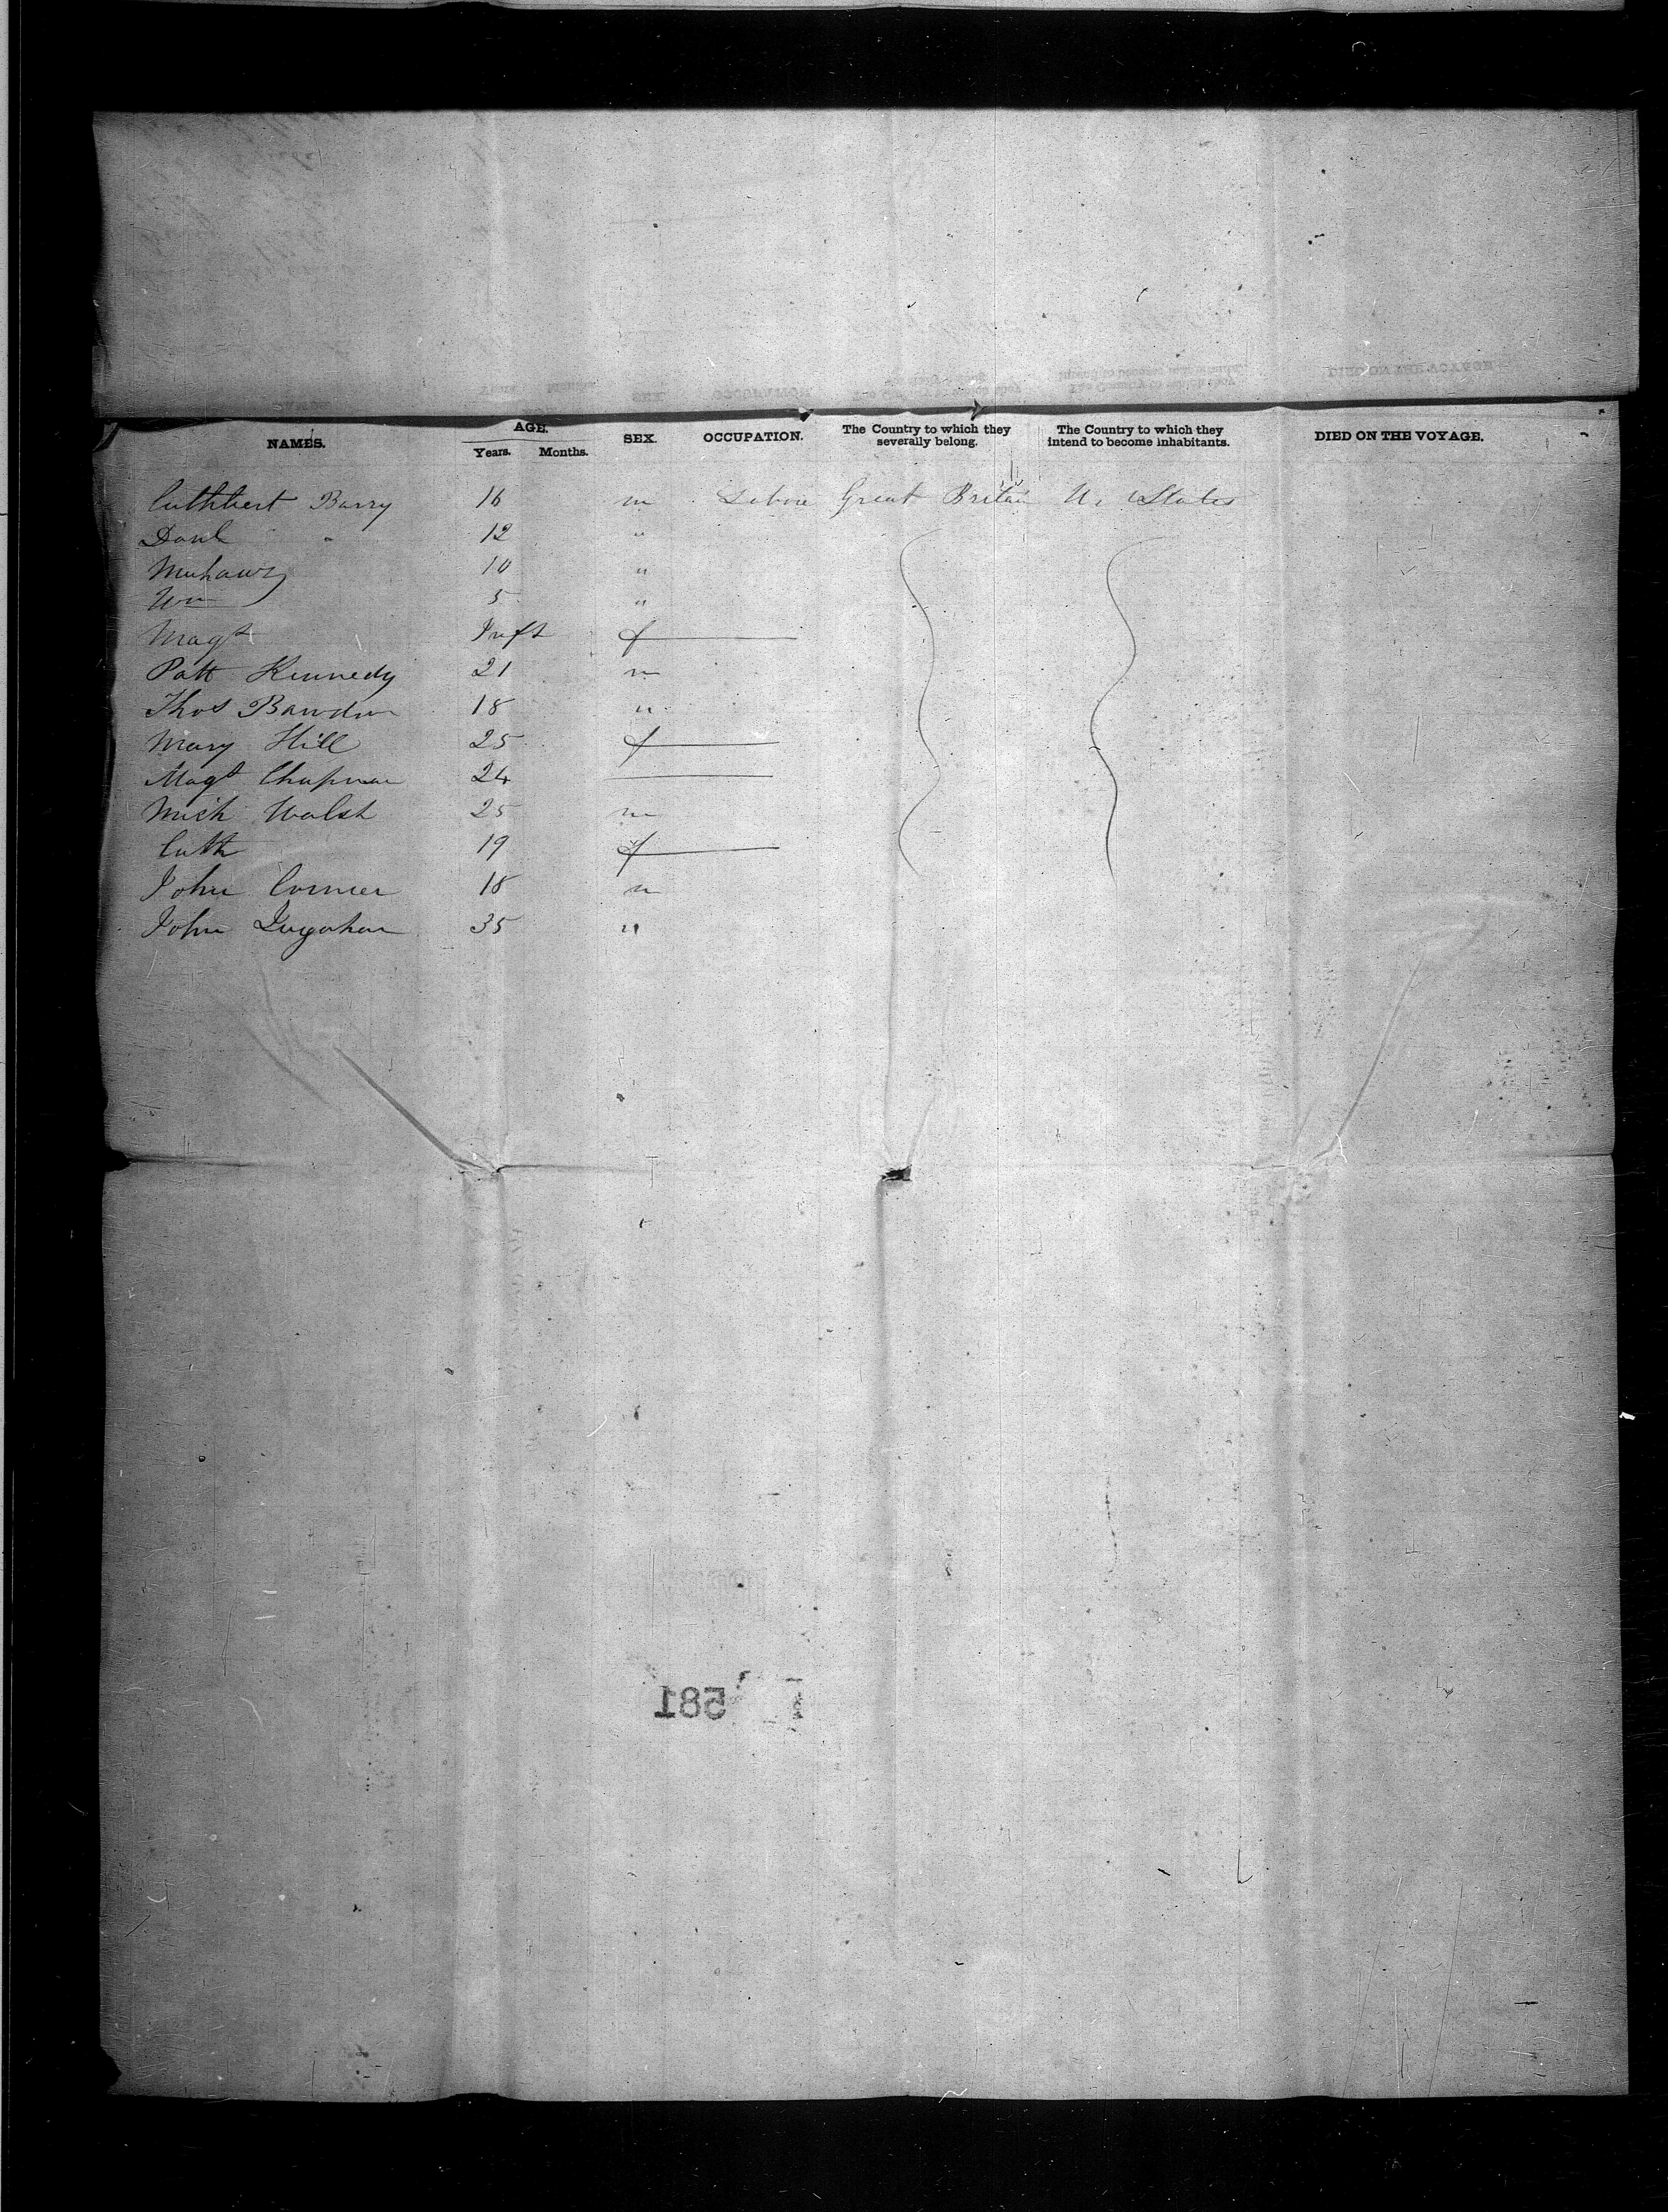 NAMES. AGE. SEX. OCCUPATION. The Country to which they severally belong. The Country to which they intend to become inhabitants. DIED ON THE VOYAGE.
Years. Months.
Cuthbert Barry 16 m Great Britain U. States
Danl " 12 "
10 "
Wm 5 "
Magt Inft f
Patt Kennedy 21 m
Thos 18 "
Mary Hill 25 f
Magt Chapman 24
Mich Walsh 25 m
Cath 19 f
John Conner 18 m
John 35 "
581